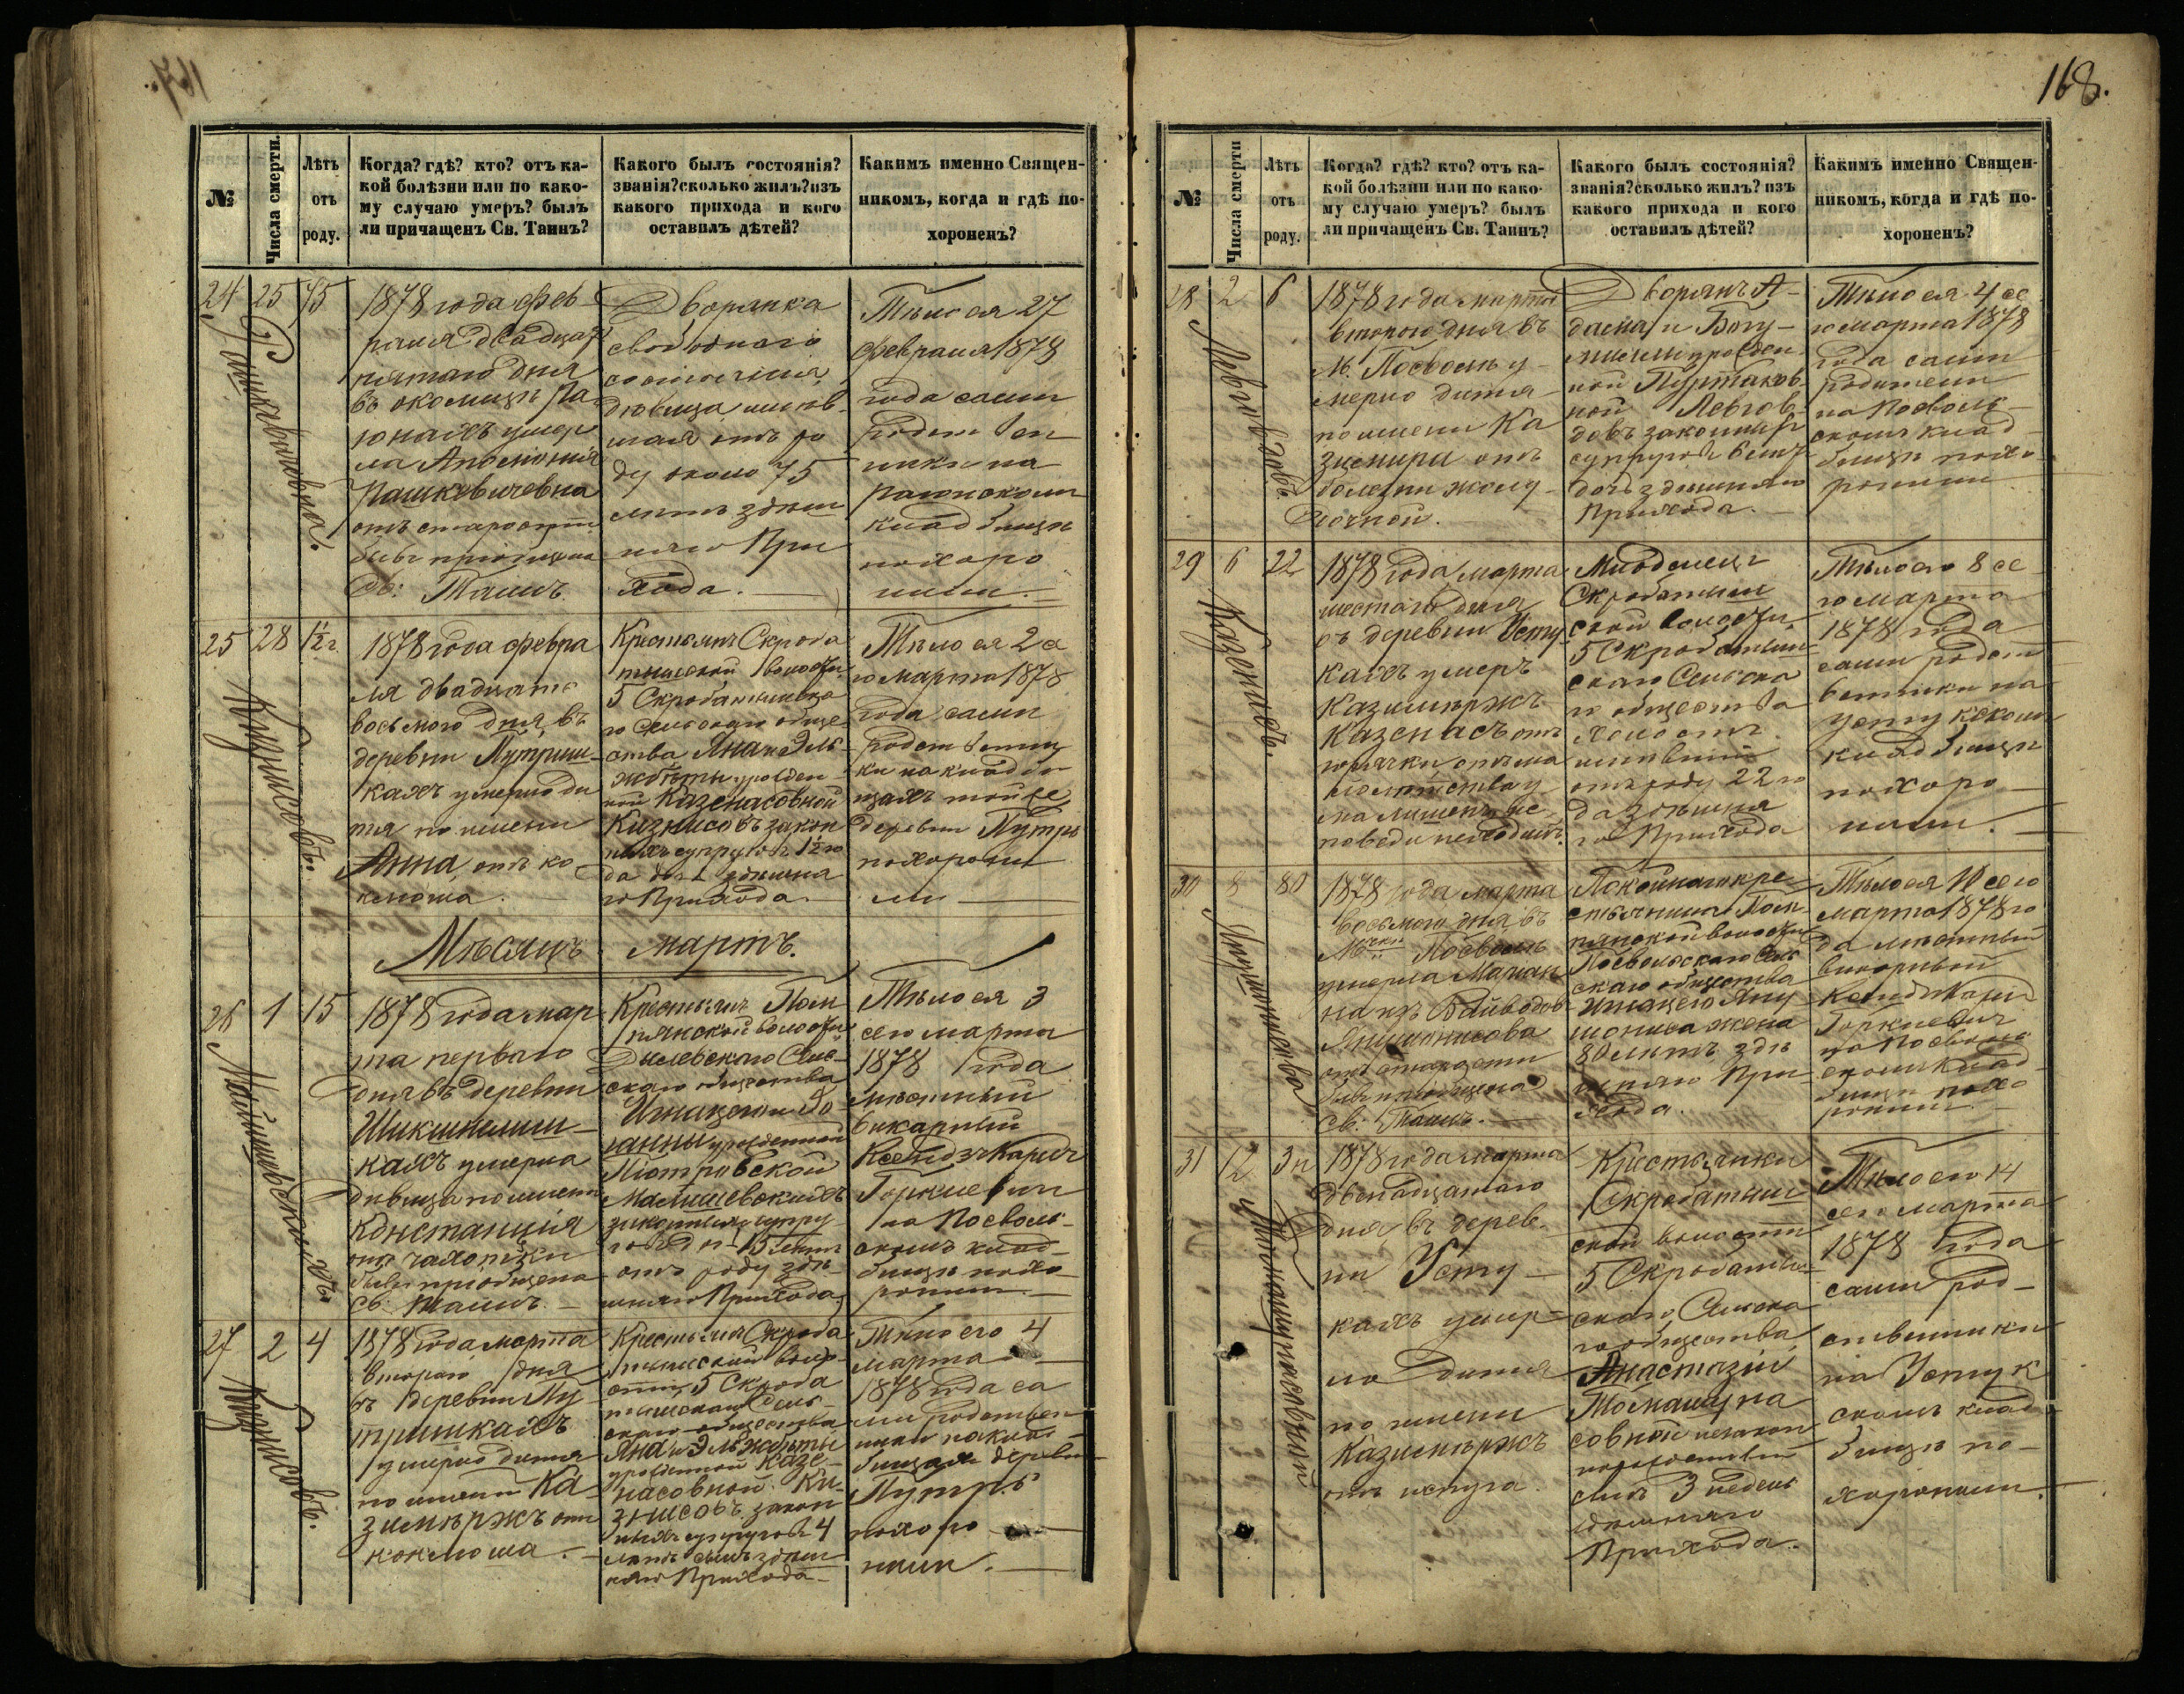 168.
№
Числа смерти.
Лѣтъ
отъ
роду.
Когда? гдѣ? кто? отъ ка-
кой болѣзни или по како-
му случаю умеръ? былъ
ли причащенъ Св. Таинъ?
Какого былъ состоянія?
званія? сколько жилъ? изъ
какого прихода и кого
оставилъ дѣтей?
Какимъ именно Священ-
никомъ, когда и гдѣ по-
хороненъ?
24
25
75
1878 года фев
раля двадцат
пятаго дня
въ околицѣ Ра
юнахъ умер
ла Аполонія
Рашкевичевна
отъ старости
бывъ приобщена
Св: Таинъ.
Дворянка
свободнаго
состоянія
дѣвица имѣв
шая отъ ро
ду около 75
лѣтъ здѣш
няго При
хода.
Тѣло ея 27
февраля 1878
года сами
родствен
ники на
кладбищѣ
похоро
нили.
25
28
1½ г.
1878 года февра
ля двадцать
восьмого дня въ
деревни Путриш
кахъ умерло ди
тя по имени
Анна, отъ ко
клюша.
Крестьянъ Скроба
тишской волости
5 Скробатишска
го Сельскаго обще
ства Яна и Эль
жбѣты урожден
ной Казенасовной
Кизнисовъ закон
ныхъ супруговъ 1½ го
да дочь здѣшня
го Прихода.
Тѣло ея 2 се
го марта 1878
года сами
родственни
ки на кладби
щахъ той же
деревни Путри
похорони
ли
Кизнисовъ.
Мѣсяцъ мартъ.
26
1
15
1878 года мар
та перваго
дня въ деревни
Шикшнелиш
кахъ умерла
дѣвица по имени
Констанція
отъ чахотки
бывъ приобщена
Св: Таинъ.
Крестьянъ Пом
пянской волости
Дылевскаго Сель
скаго общества
Игнацего и Іо
анны урожденной
Піотровской
Малишевскихъ
законныхъ супру
говъ дочь 15 лѣтъ
отъ роду здѣ
шняго Прихода
Тѣло ея 3
сего марта
1878 года
мѣстный
викарный
Ксендзъ Карлъ
Горклевичъ
на Посволь
скомъ клад
бищѣ похо
ронилъ.
27
2
4
1878 года марта
второго дня
въ деревни Пу
тришкахъ
умерло дитя
по имени Ка
зимѣржъ отъ
коклюша.
Крестьянъ Скроба
тишской воло
сти, 5 Скроба
тишскаго Сель
скаго общества
Яна и Эльжбѣты
урожденной Казе
насовной Ки
знисовъ закон
ныхъ супруговъ 4
лѣтъ сынъ здѣш
няго Прихода
Тѣло его 4
марта
1878 года са
ми родствен
ники на клад
бищахъ деревни
Путри
похоро
нили.
Кизнисовъ.
№
Числа смерти
Лѣтъ
отъ
роду.
Когда? гдѣ? кто? отъ ка-
кой болѣзни или по како-
му случаю умеръ? былъ
ли причащенъ Св. Таинъ?
Какого былъ состоянія?
званія? сколько жилъ? изъ
какого прихода и кого
оставилъ дѣтей?
Какимъ именно Священ-
никомъ, когда и гдѣ по-
хороненъ?
28
2
6
1878 года марта
второго дня въ
М. Посволѣ у
мерло дитя
по имени Ка
зиемира отъ
болезни желу
дочной.
Дворянъ А
дама и Богу
милы урожден
ной Пурташов
ной Левговъ
довъ законныхъ
супруговъ 6 лѣтъ
дочь здѣшняго
Прихода.
Тѣло ея 4 се
го марта 1878
года сами
родители
на Посволь
скомъ клад
бищѣ похо
ронили
29
6
22
1878 года марта
шестаго дня
въ деревни Усту
кахъ умеръ
Казимѣржъ
Казенасъ отъ
горячки
Скробатиш
ской волости
5 Скробатиш
скаго Сельска
го общества
холостъ
имѣвшій
отъ роду 22 го
да здѣшня
го Прихода
Тѣло его 8 се
го марта
1878 года
сами родст
венники на
Устукскомъ
кладбищѣ
похоро
нили.
Казенасъ.
30
8
80
1878 года марта
восьмого дня въ
Посволѣ
умерла Маріан
на изъ Вайводовъ
Янушонисова
отъ старости
бывъ приобщена
Св: Таинъ.
Покойнаго кре
стьянина Пом
пянской волости
Посвольскаго Сель
скаго общества
Игнацего Яну
шониса жена
80 лѣтъ здѣ
шняго При
хода.
Тѣло ея 10 сего
марта 1878 го
да мѣстный
викарный
Ксендзъ Карлъ
Горклевичъ
на Посволь
скомъ клад
бищѣ похо
ронилъ.
31
12
3 н
1878 года марта
двенадцатаго
дня въ дерев
ни Усту
кахъ умер
ло дитя
по имени
Казимѣржъ
отъ испуга.
Крестьянки
Скробатиш
ской волости
5 Скробатиш
скаго Сельска
го общества
Анастазіи
Томашуна
совной незакон
норожденный
сынъ 3 недель
здѣшняго
Прихода.
Тѣло его 14
сего марта
1878 года
сами род
ственники
на Устук
скомъ клад
бищѣ по
хоронили.